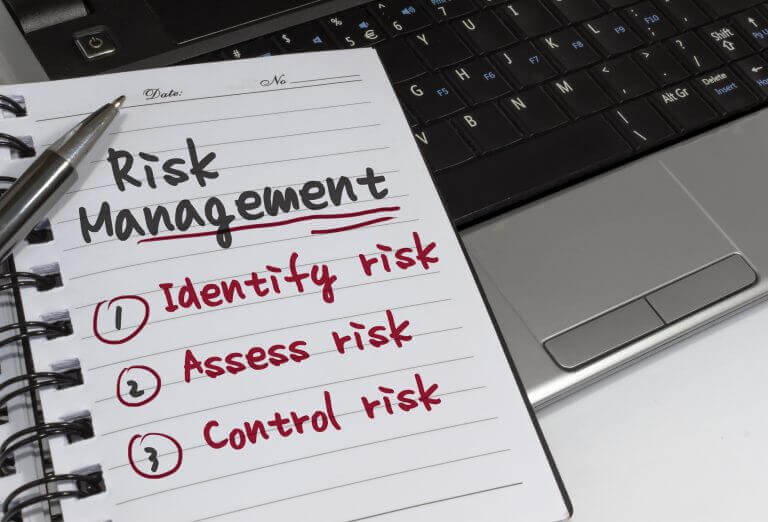 Date: No
Risk
Management
1 Identify risk
2 Assess risk
3 Control risk
$ % 5 € 6 & 7 8 ( 9
Y U I O P
G F5 H F6 J F7 K F8 L F9 F10
V B N M < , > . ? /
Alt Gr Delete Insert
Shift